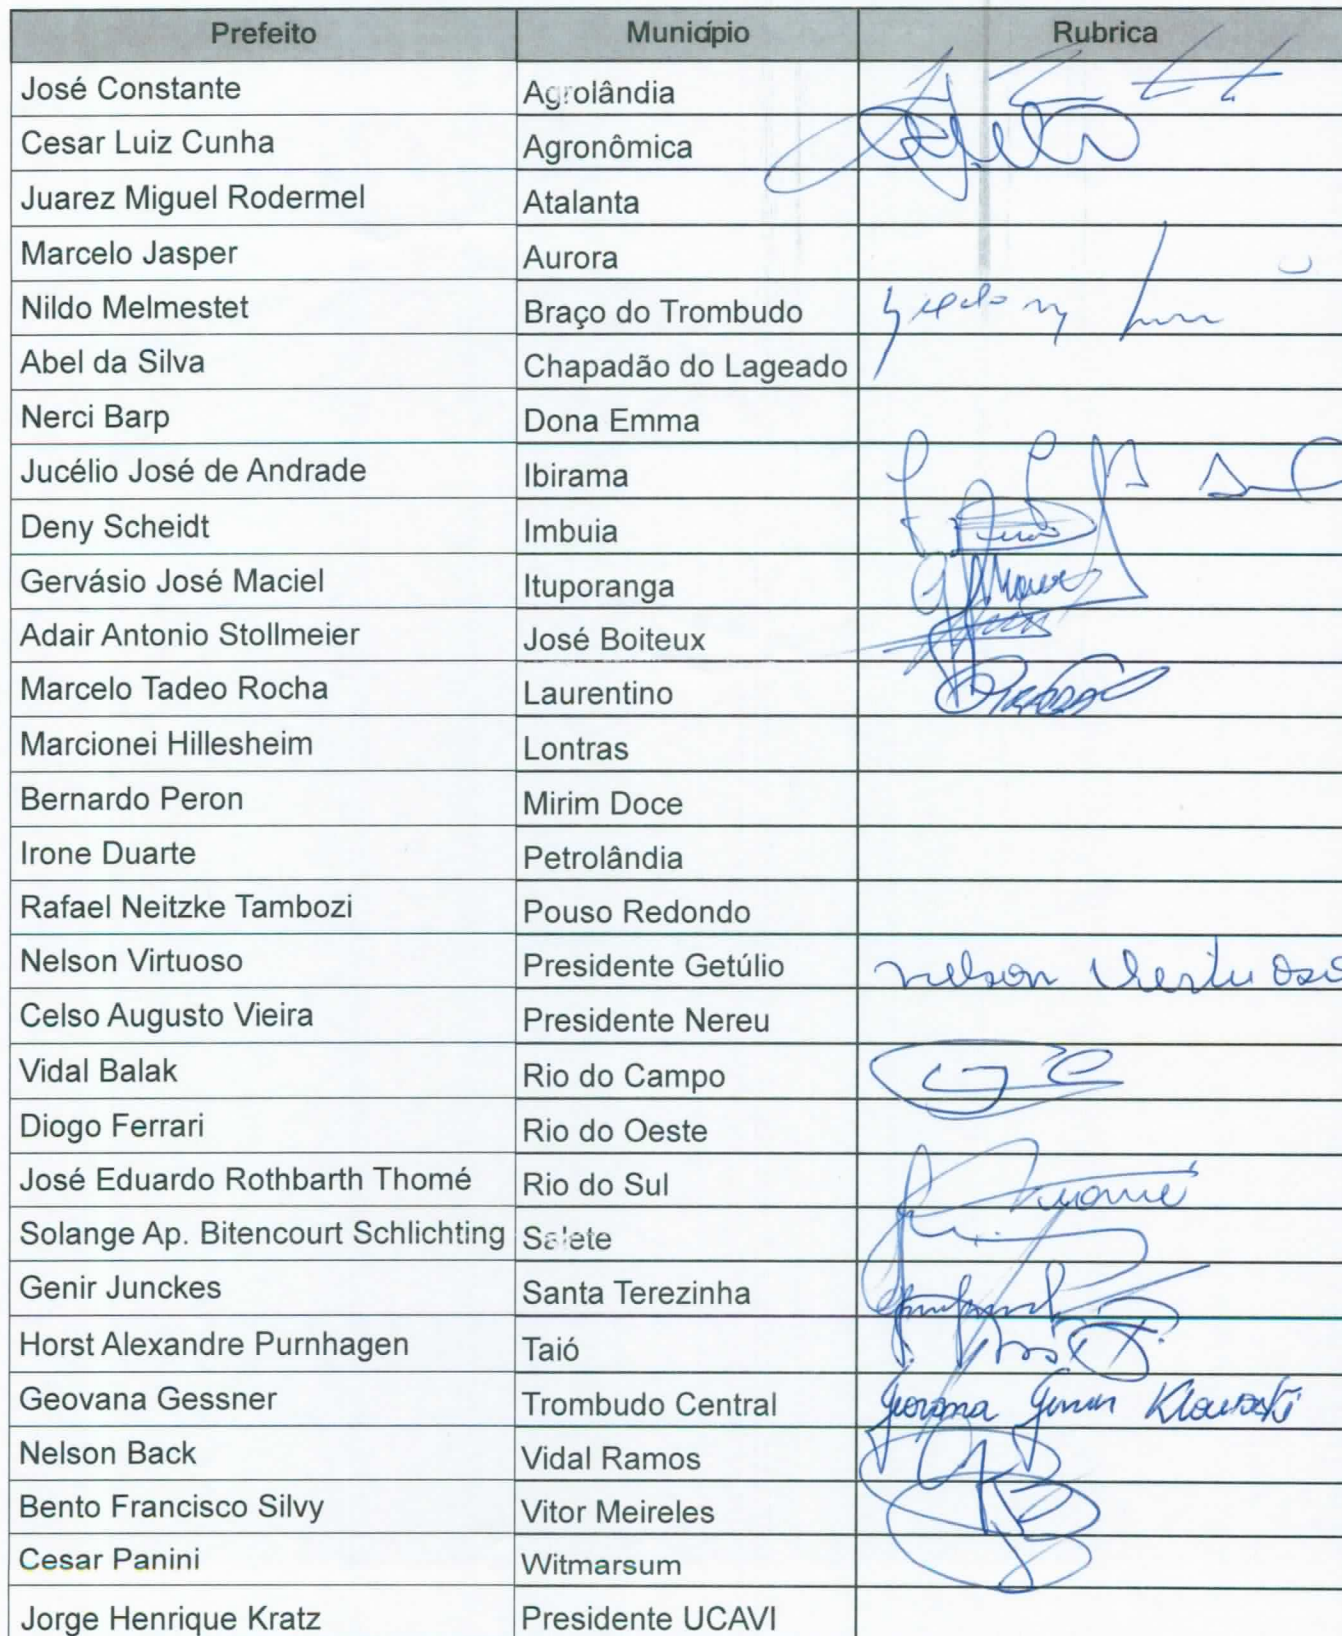 Prefeito Município Rubrica
José Constante Agrolândia
Cesar Luiz Cunha Agronômica
Juarez Miguel Rodermel Atalanta
Marcelo Jasper Aurora
Nildo Melmestet Braço do Trombudo
Abel da Silva Chapadão do Lageado
Nerci Barp Dona Emma
Jucélio José de Andrade Ibirama
Deny Scheidt Imbuia
Gervásio José Maciel Ituporanga
Adair Antonio Stollmeier José Boiteux
Marcelo Tadeo Rocha Laurentino
Marcionei Hillesheim Lontras
Bernardo Peron Mirim Doce
Irone Duarte Petrolândia
Rafael Neitzke Tambozi Pouso Redondo
Nelson Virtuoso Presidente Getúlio nelson Virtuoso
Celso Augusto Vieira Presidente Nereu
Vidal Balak Rio do Campo
Diogo Ferrari Rio do Oeste
José Eduardo Rothbarth Thomé Rio do Sul
Solange Ap. Bitencourt Schlichting Salete
Genir Junckes Santa Terezinha
Horst Alexandre Purnhagen Taió
Geovana Gessner Trombudo Central Geovana
Nelson Back Vidal Ramos
Bento Francisco Silvy Vitor Meireles
Cesar Panini Witmarsum
Jorge Henrique Kratz Presidente UCAVI